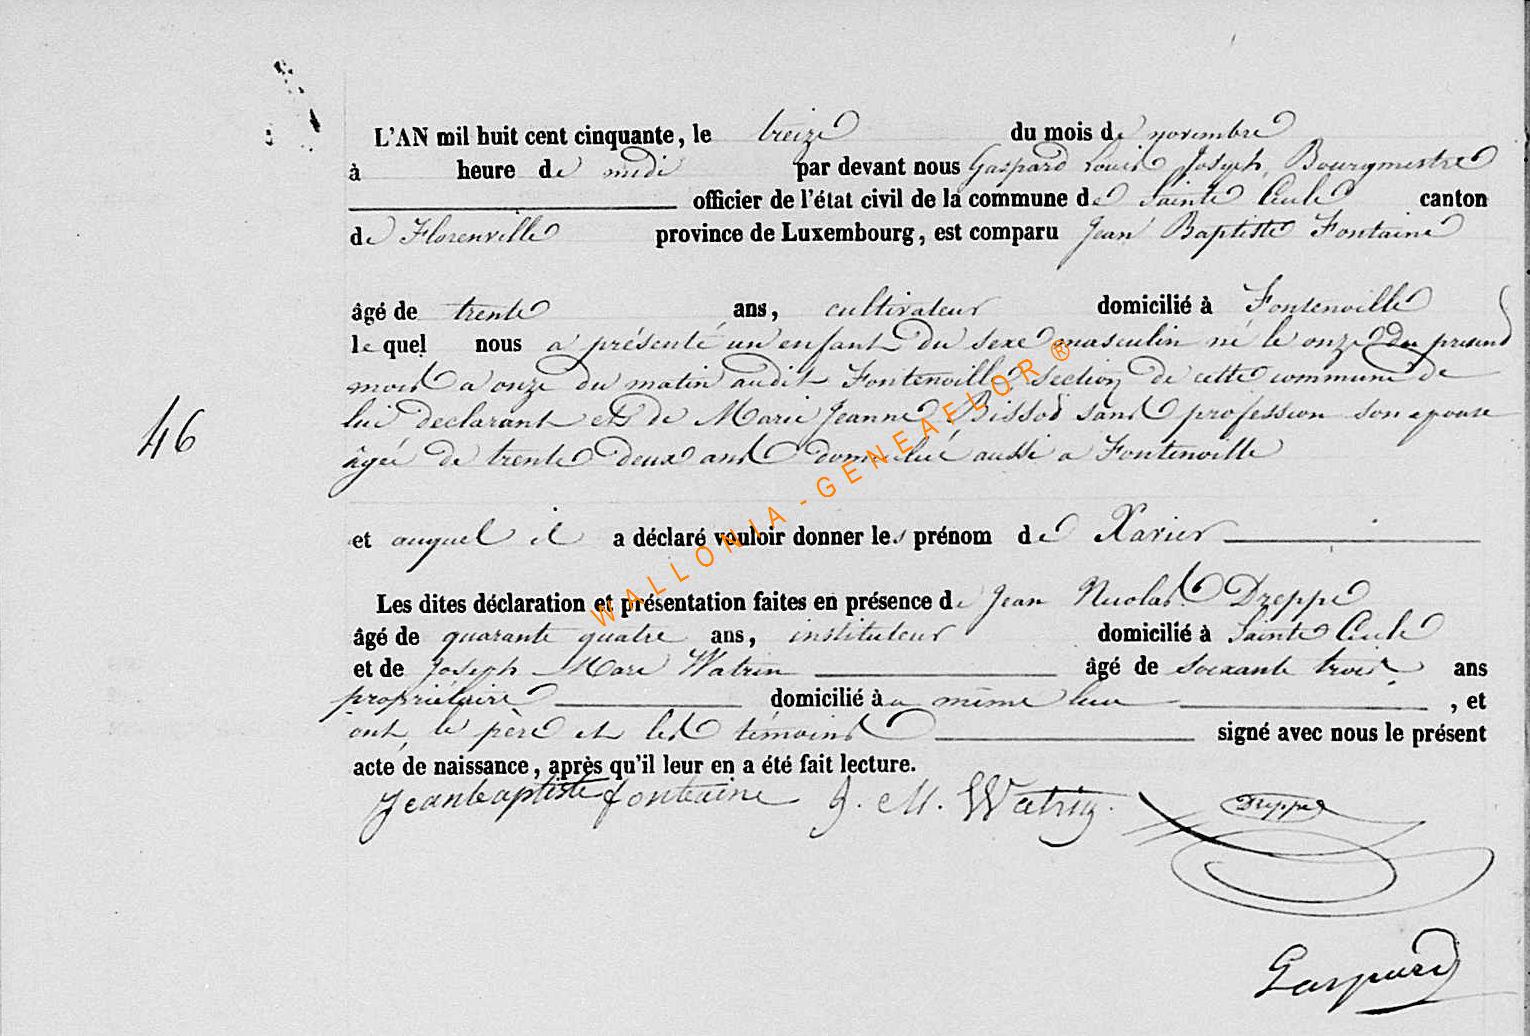 L'AN mil huit cent cinquante, le treize du mois de novembre
à heure de midi par devant nous Gaspard Louis Joseph, Bourgmestre
officier de l'état civil de la commune de Sainte Cécile canton
de Florenville province de Luxembourg, est comparu Jean Baptiste Fontaine
âgé de trente ans, cultivateur domicilié à Fontenoille
le quel nous a présenté un enfant du sexe masculin né le onze du present
mois a onze du matin audit Fontenoille section de cette commune de
46
lui declarant et de Marie Jeanne Bissot sans profession son epouse
âgée de trente deux ans domicilié aussi a Fontenoille
et auquel il a déclaré vouloir donner les prénom de Xavier
Les dites déclaration et présentation faites en présence de Jean Nicolas Dreppe
âgé de quarante quatre ans, instituteur domicilié à Sainte Cécile
et de Joseph Marc Watrin âgé de soixante trois ans
propriétaire domicilié à a même lieu , et
ont, le père et les témoins signé avec nous le présent
acte de naissance, après qu'il leur en a été fait lecture.
Jeanbaptiste fontaine J. M. Watrin. Dreppe
Gaspard
WALLONIA - GENEAFLOR ®